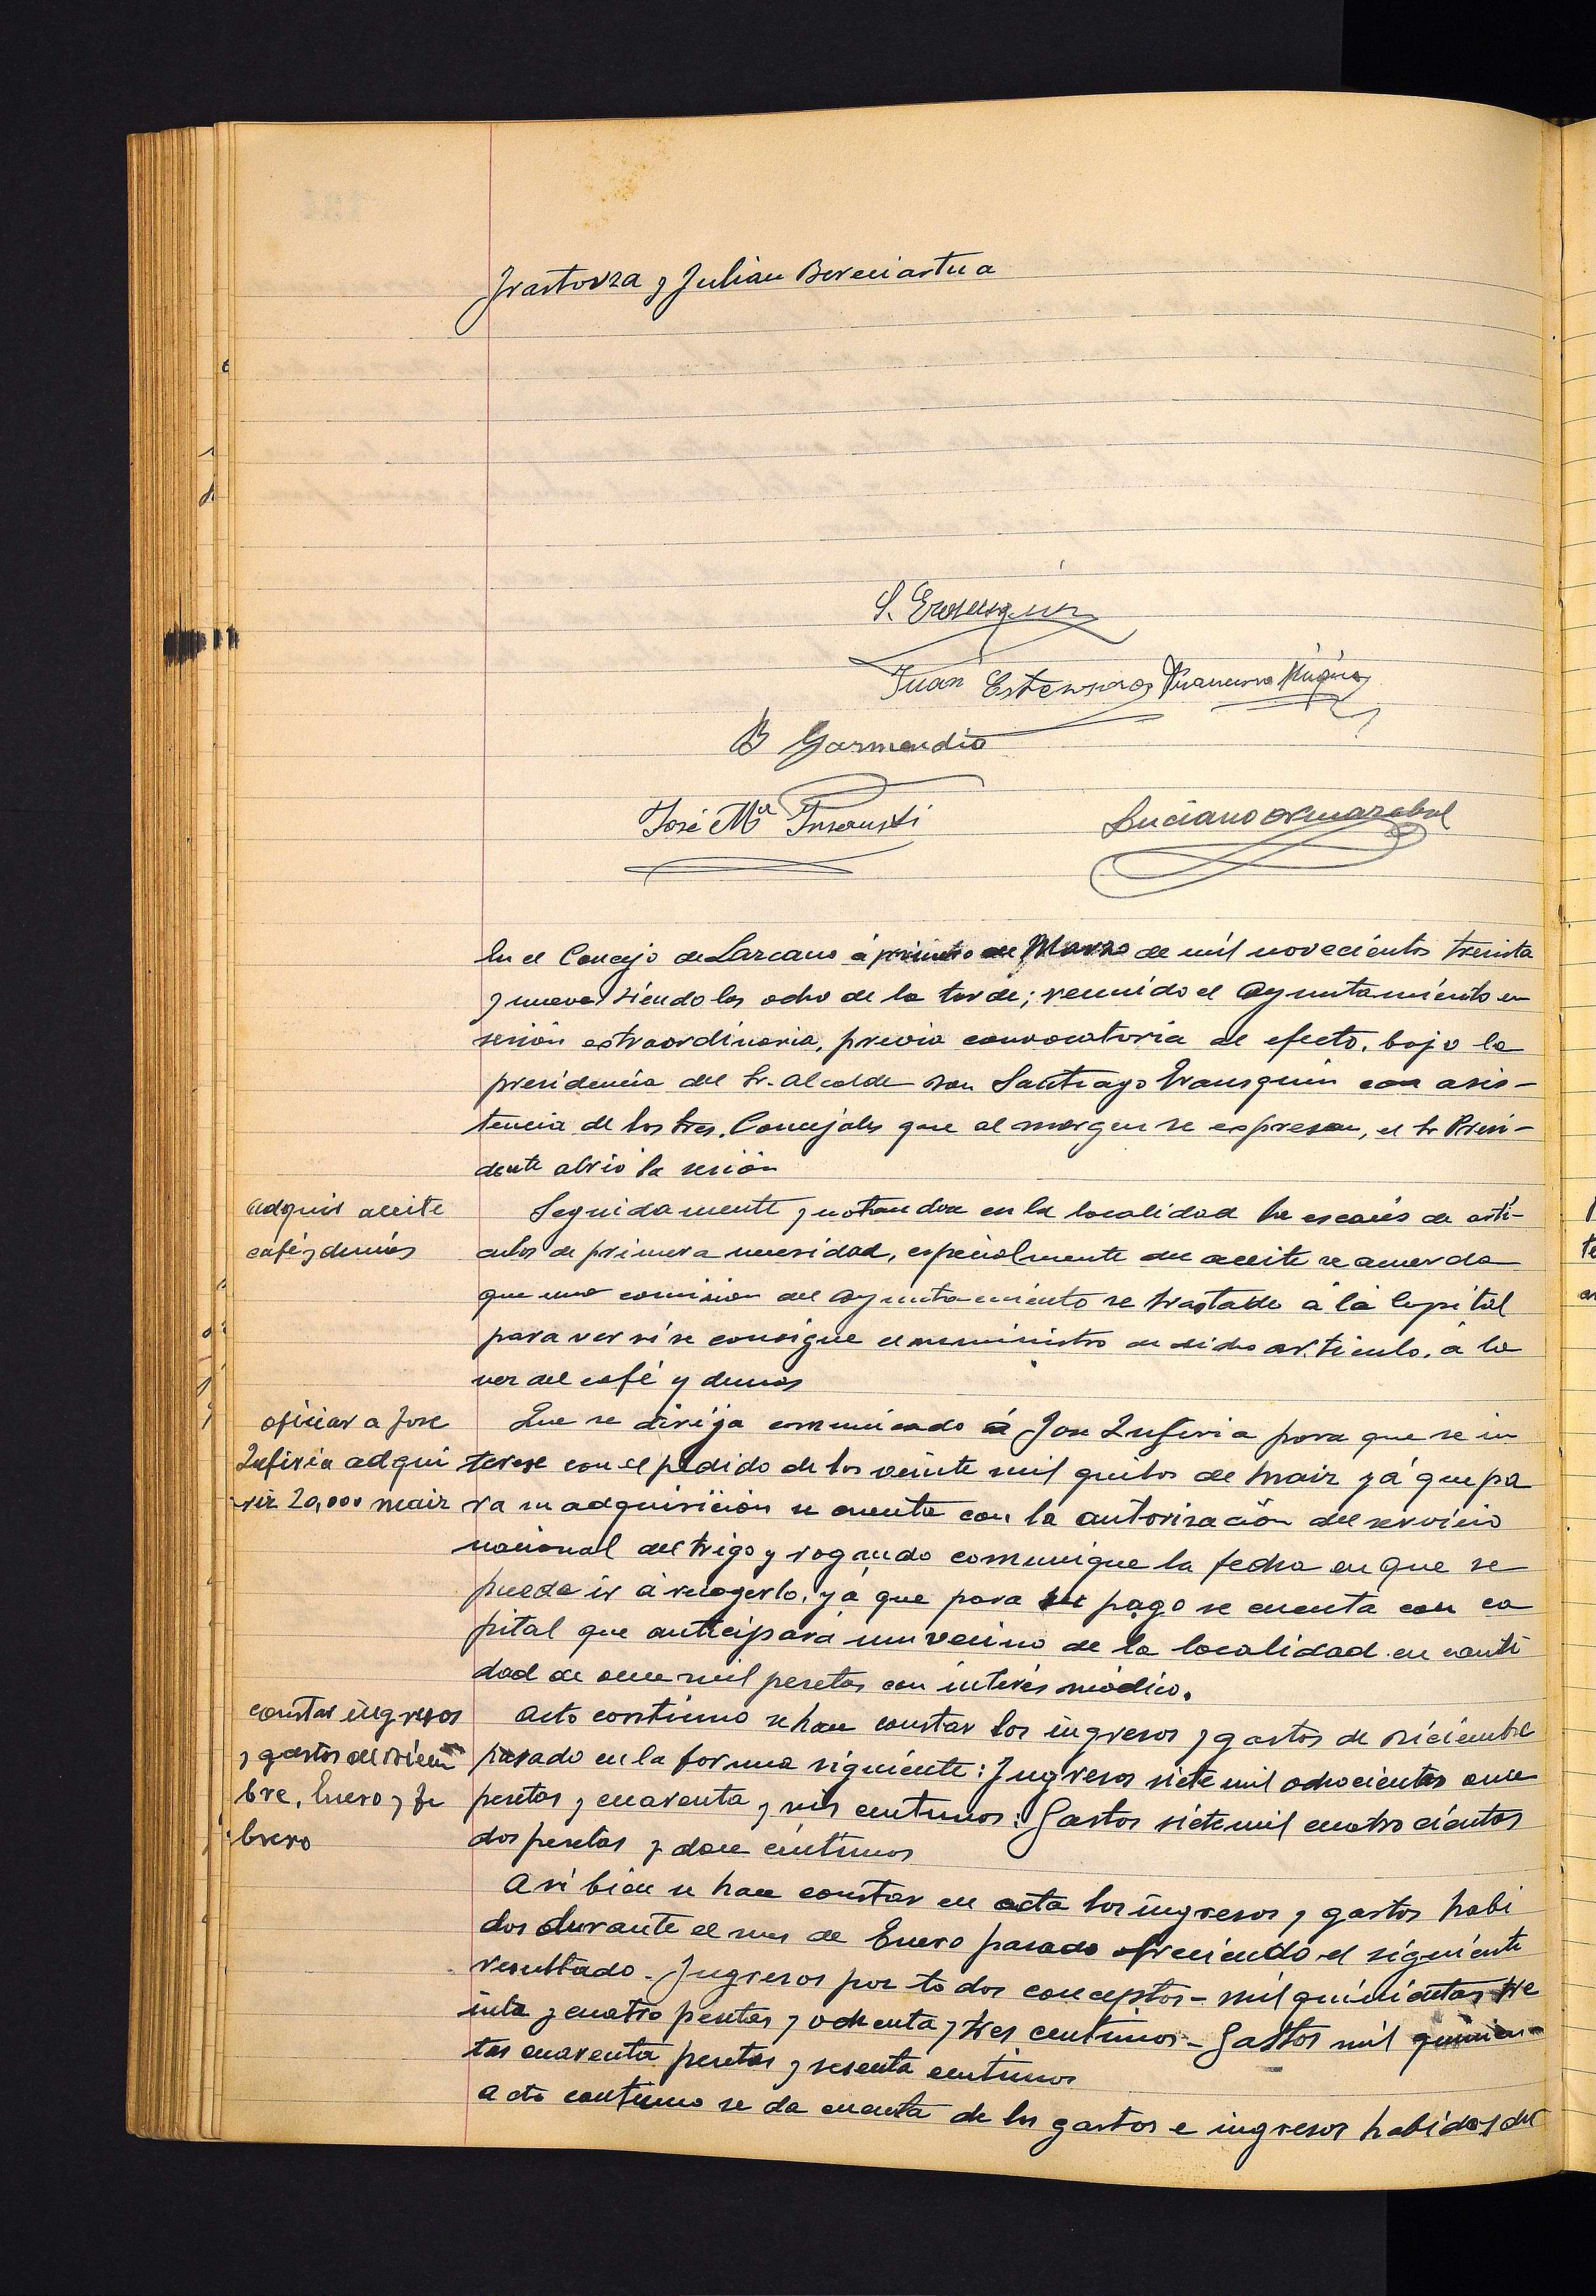 Irastorza y Julian Bereciartua
S. Erausquin
Juan Estensoro
B Garmendia
José Mª Insausti
Luciano Ormazabal
En el Concejo de Lazcano á primero de Marzo de mil novecientos treinta
y nueve, siendo las ocho de la tarde; reunido el Ayuntamiento en
sesion extraordinaria, previa convocatoria al efecto, bajo la
presidencia del Sr. Alcalde Don Santiago Erausquin con asis-
tencia de los Sres. Concejales que al margen se expresan, el Sr Presi-
dente abrio la sesión
adquir aceite
café y demás
Seguidamente y notandose en la localidad la escasés de arti-
culos de primera necesidad, especialmente del aceite se acuerda
que una comision del Ayuntamiento se traslade á la Capital
para ver si se consigue el suministro de dicho articulo, á la
vez del café y demas
oficiar a Jose
Zufiria adqui
rir 20,000 maiz
Que se dirija comunicado á Jose Zufiria para que se in
terese con el pedido de los veinte mil quilos de maiz yá que pa
ra su adquisición se cuenta con la autorización del servicio
nacional del trigo y rogando comunique la fecha en que se
pueda ir á recogerlo, yá que para su pago se cuenta con ca
pital que anticipará un vecino de la localidad en canti
dad de once mil pesetas con interés módico.
constar ingresos
y gastos del Diciem
bre, Enero y Fe
brero
Acto continuo se hace constar los ingresos y gastos de Diciembre
pasado en la forma siguiente: Ingresos siete mil ochocientas once
pesetas y cuarenta y seis centimos: Gastos siete mil cuatrocientas
dos pesetas y doce centimos
Asi bien se hace constar en acta los ingresos y gastos habi
dos durante el mes de Enero pasado ofreciendo el siguiente
resultado. Ingresos por todos conceptos - mil quinientas tre
inta y cuatro pesetas y ochenta y tres centimos - Gastos mil quinien-
tas cuarenta pesetas y sesenta centimos
Acto continuo se da cuenta de los gastos e ingresos habidos du